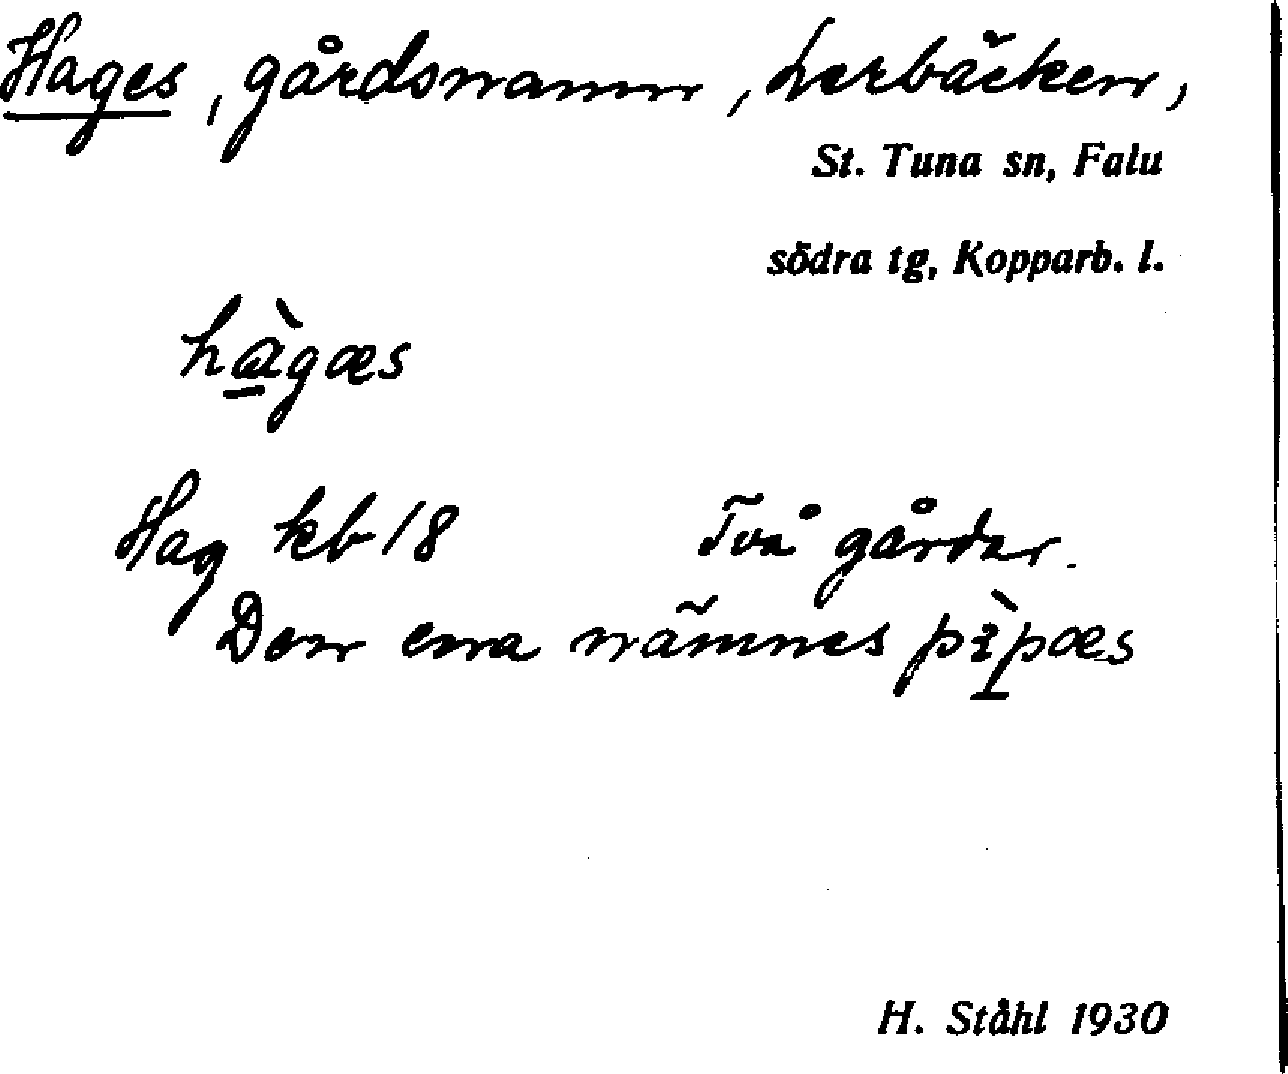 Hages, gårdsnamn, Lerbäcken,
St. Tuna sn, Falu
södra tg, Kopparb. l.
hàgæs
Hag kb 18 Två gårdar.
Den ena nämnes pìpæs
H. Ståhl 1930